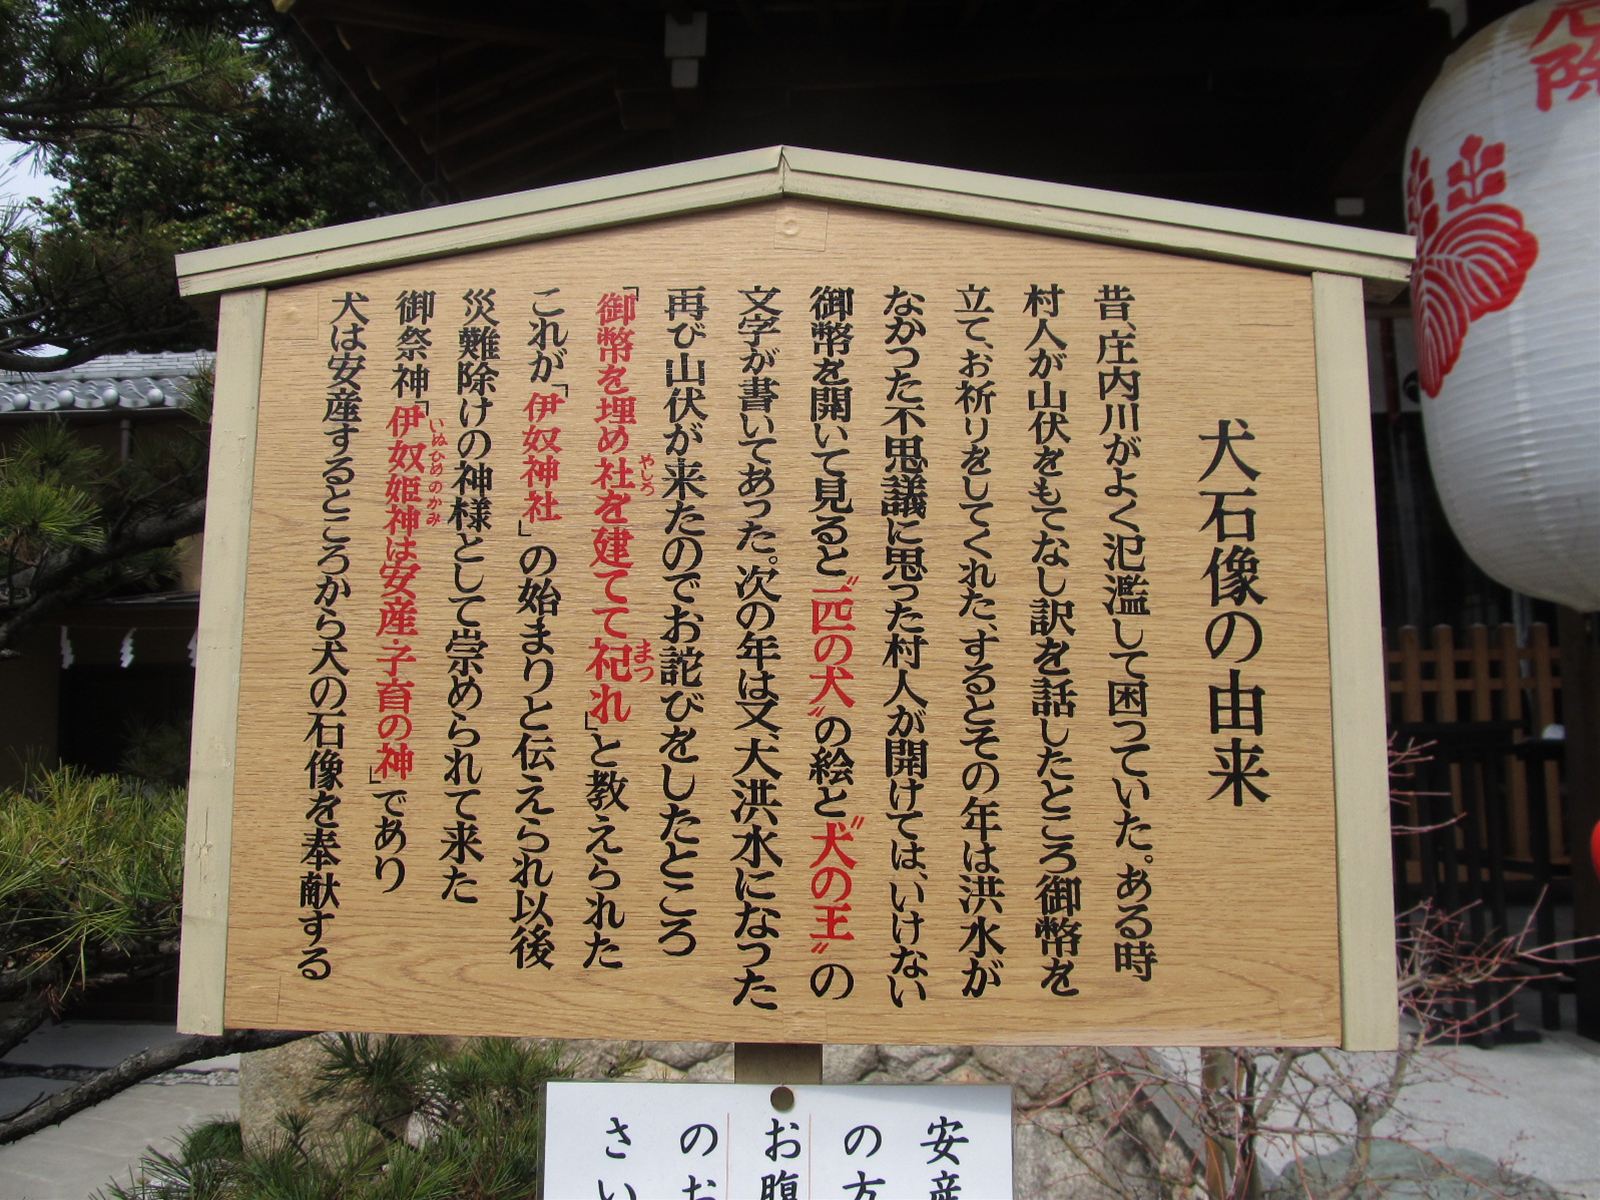 犬石像の由来
昔、庄内川がよく氾濫して困っていた。ある時
村人が山伏をもてなし訳を話したところ御幣を
立て、お祈りをしてくれた、するとその年は洪水が
なかった不思議に思った村人が開けては、いけない
御幣を開いて見ると〝一匹の犬〟の絵と〝犬の王〟の
文字が書いてあった。次の年は又、大洪水になった
再び山伏が来たのでお詫びをしたところ
「御幣を埋め社を建てて祀れ」と教えられた
やしろ
まつ
これが「伊奴神社」の始まりと伝えられ以後
災難除けの神様として崇められて来た
御祭神「伊奴姫神は安産・子育の神」であり
いぬひめのかみ
犬は安産するところから犬の石像を奉献する
安産
の方
お腹
のお
さい
厄除